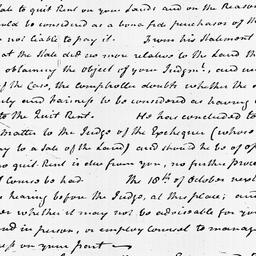 ble to quit Rent on your Land, and on the Reason
uld be considered as a bona fide purchaser of th
s not liable to pay it. From his Statement
at the State did no more relative to the Land th
obtaining the object of your Judgmt, and un
of the Case, the comptroller doubts whether the
uly and harness to be considered as having
to the Quit Rent. He has concluded to
matter to the Judge of the Exchequer (whose
ay to a sale of the Land) and should he be of op
no quit Rent is due from you, no further proce
l Course be had. The 18th of October next
hearing before the Judge, at this place; and
er whether it may not be adviseable for you
nd in person, or employ counsel to manage
ess on your part —